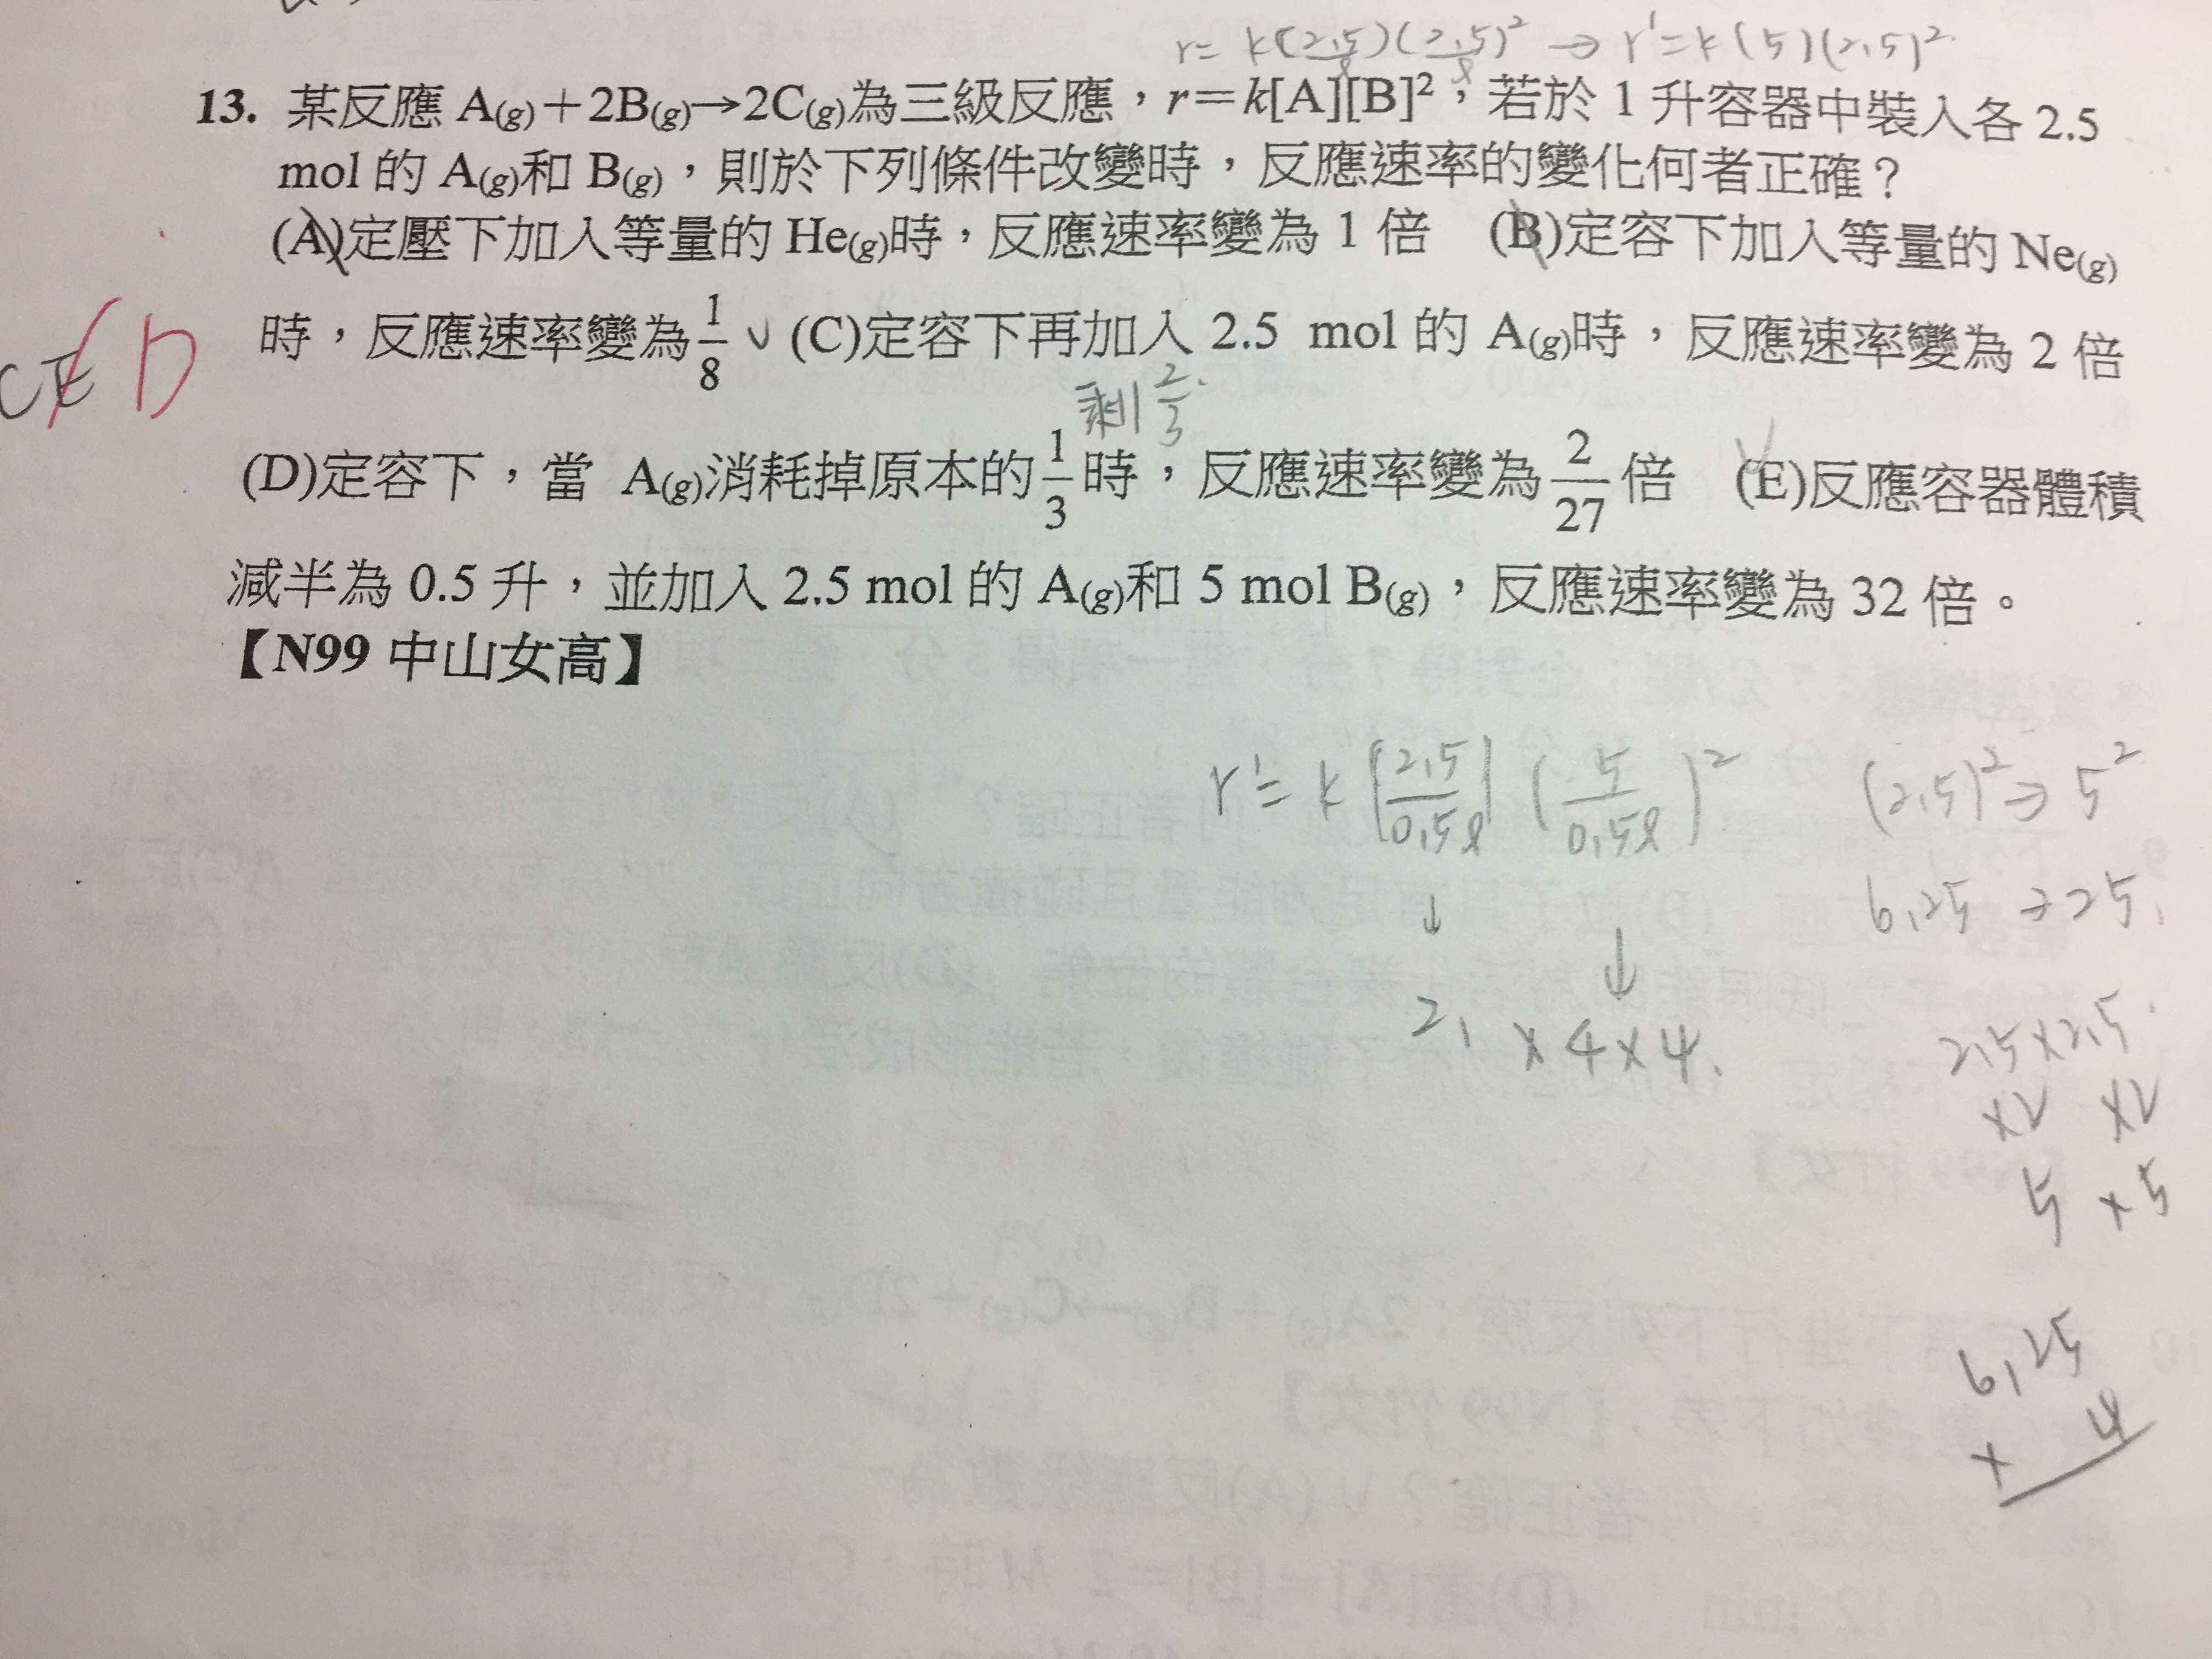 r = k(2.5/ℓ)(2.5/ℓ)² → r' = k(5)(2.5)²
13. 某反應 A(g)＋2B(g)→2C(g)為三級反應，r＝k[A][B]²，若於 1 升容器中裝入各 2.5
mol 的 A(g)和 B(g)，則於下列條件改變時，反應速率的變化何者正確？
(A)定壓下加入等量的 He(g)時，反應速率變為 1 倍　(B)定容下加入等量的 Ne(g)
時，反應速率變為 1/8 ∨ (C)定容下再加入 2.5 mol 的 A(g)時，反應速率變為 2 倍
CE D
剩 2/3
(D)定容下，當 A(g)消耗掉原本的 1/3 時，反應速率變為 2/27 倍　(E)反應容器體積
減半為 0.5 升，並加入 2.5 mol 的 A(g)和 5 mol B(g)，反應速率變為 32 倍。
【N99 中山女高】
r' = k(2.5/0.5ℓ)(5/0.5ℓ)²　(2.5)² → 5²
↓　6.25 → 25
↓
2, × 4 × 4.
2.5 × 2.5
×2 ×2
5 × 5
6.25
× 4